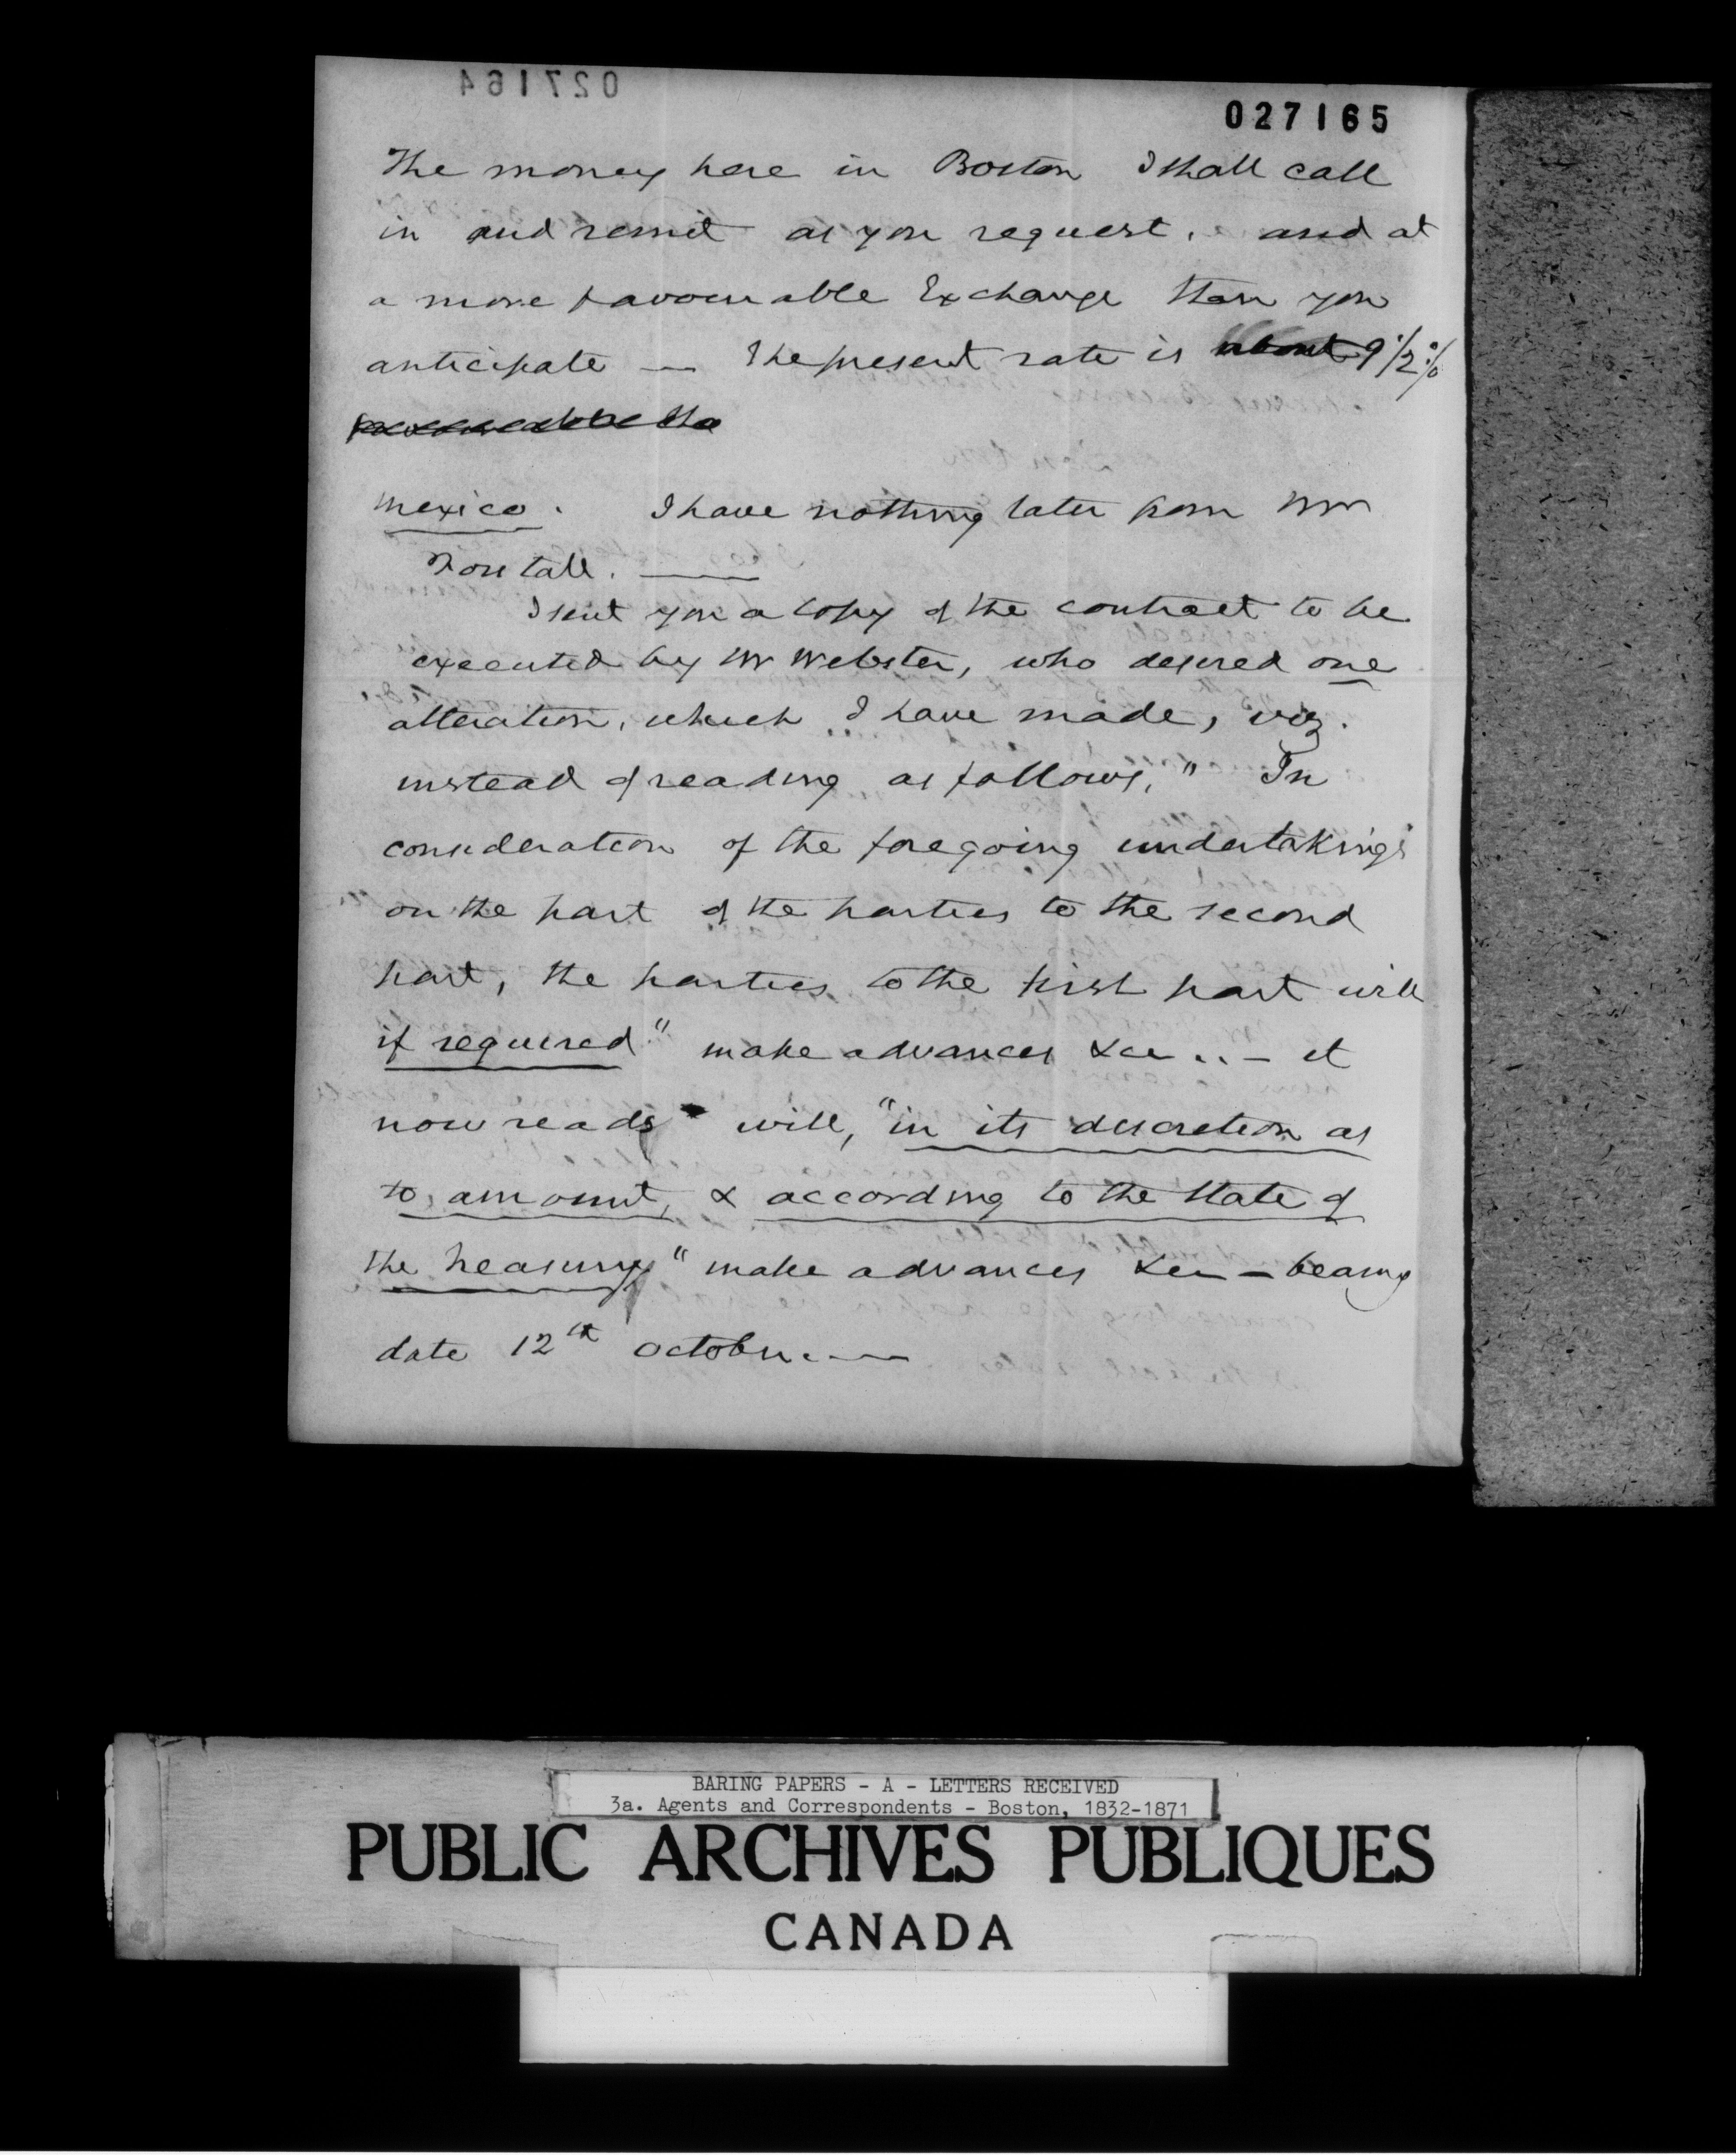 027164
027165
The money here in Boston I shall call
in and remit as you request, and at
a more favourable Exchange than you
anticipate — The present rate is about 9 1/2 %
Mexico. I have nothing later from Mr
Forstall. —
I sent you a copy of the contract to be
executed by Mr Webster, who desired one
alteration, which I have made, viz.
instead of reading as follows, " In
consideration of the foregoing undertakings
on the part of the parties to the second
part, the parties to the first part will
if required" make advances &c .. — it
now reads " will, "in its discretion as
to amount, & according to the state of
the treasury" make advances &c — bearing
date 12th October. —
BARING PAPERS - A - LETTERS RECEIVED
3a. Agents and Correspondents - Boston, 1832-1871
PUBLIC ARCHIVES PUBLIQUES
CANADA